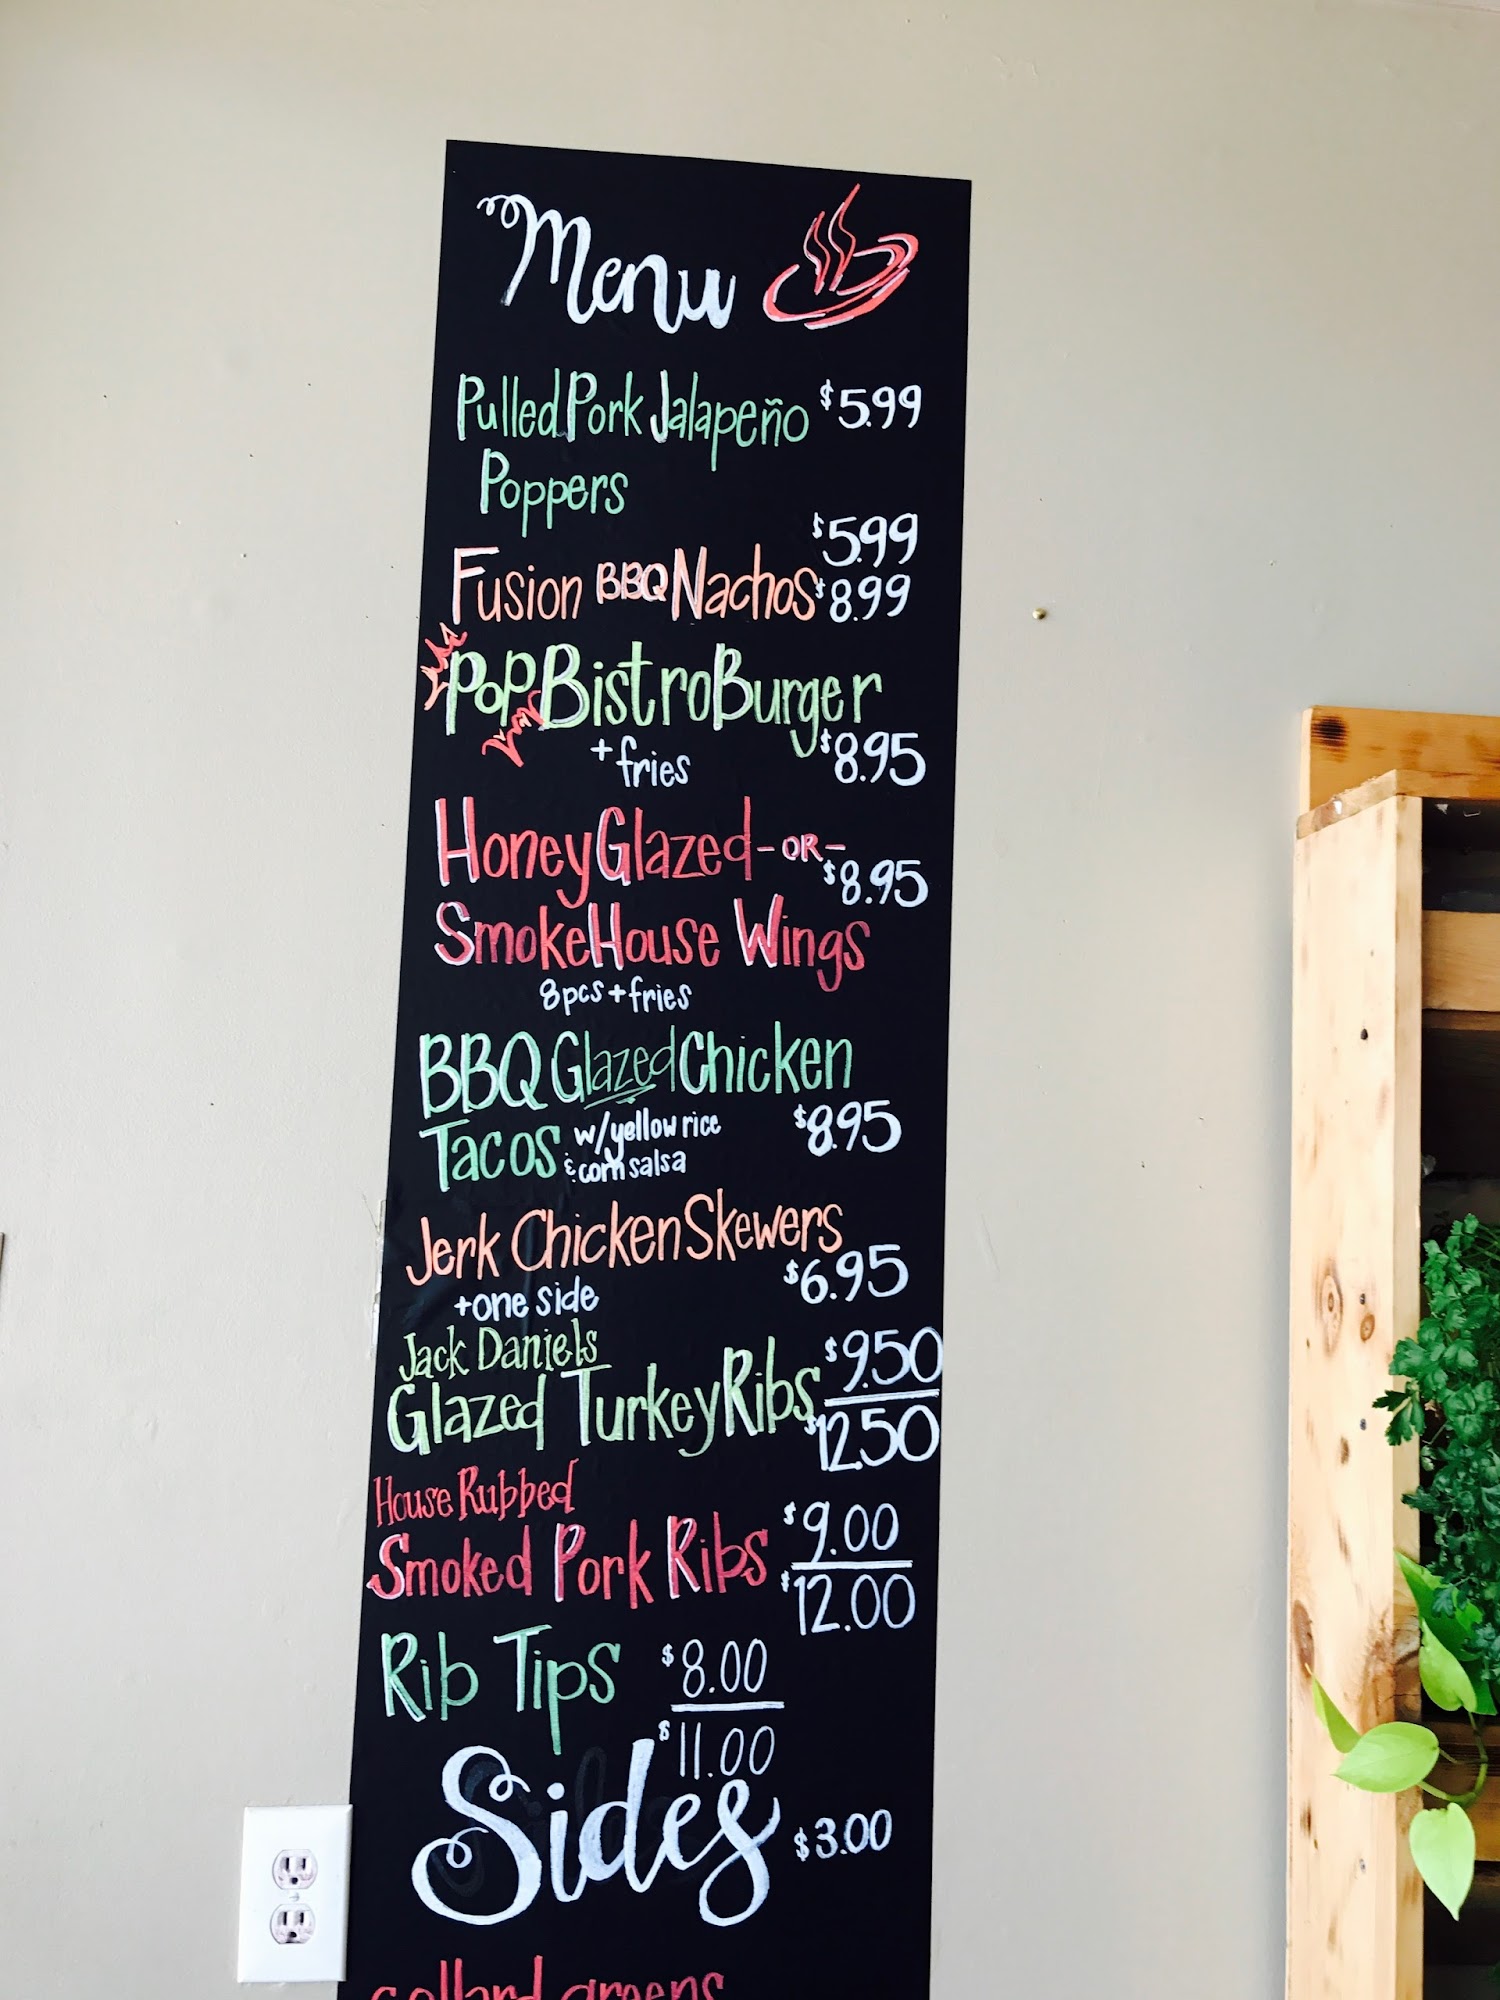 Menu
Pulled Pork Jalapeño $5.99
Poppers
$5.99
Fusion BBQ Nachos $8.99
Pop Bistro Burger
+ fries $8.95
Honey Glazed - OR -
$8.95
SmokeHouse Wings
8pcs + fries
BBQ Glazed Chicken
Tacos w/yellow rice $8.95
& corn salsa
Jerk Chicken Skewers
+one side $6.95
Jack Daniels $9.50
Glazed Turkey Ribs $12.50
House Rubbed $9.00
Smoked Pork Ribs $12.00
Rib Tips $8.00
$11.00
Sides $3.00
collard greens